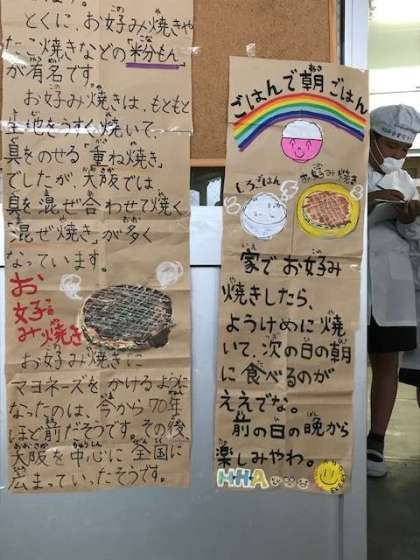 とくに、お好み焼きや
たこ焼きなどの粉もん
が有名です。
お好み焼きは、もともと
生地をうすく焼いて、
具をのせる「重ね焼き」
でしたが大阪では
具を混ぜ合わせて焼く
「混ぜ焼き」が多く
なっています。
お好み焼き
お好み焼きに
マヨネーズをかけるように
なったのは、今から70年
ほど前だそうです。その後、
大阪を中心に全国に
広まっていったそうです。
ごはんで朝ごはん
しろごはん
お好み焼き
家でお好み
焼きしたら、
ようけめに焼
いて、次の日の朝
に食べるのが
ええでな。
前の日の晩から
楽しみやわ。